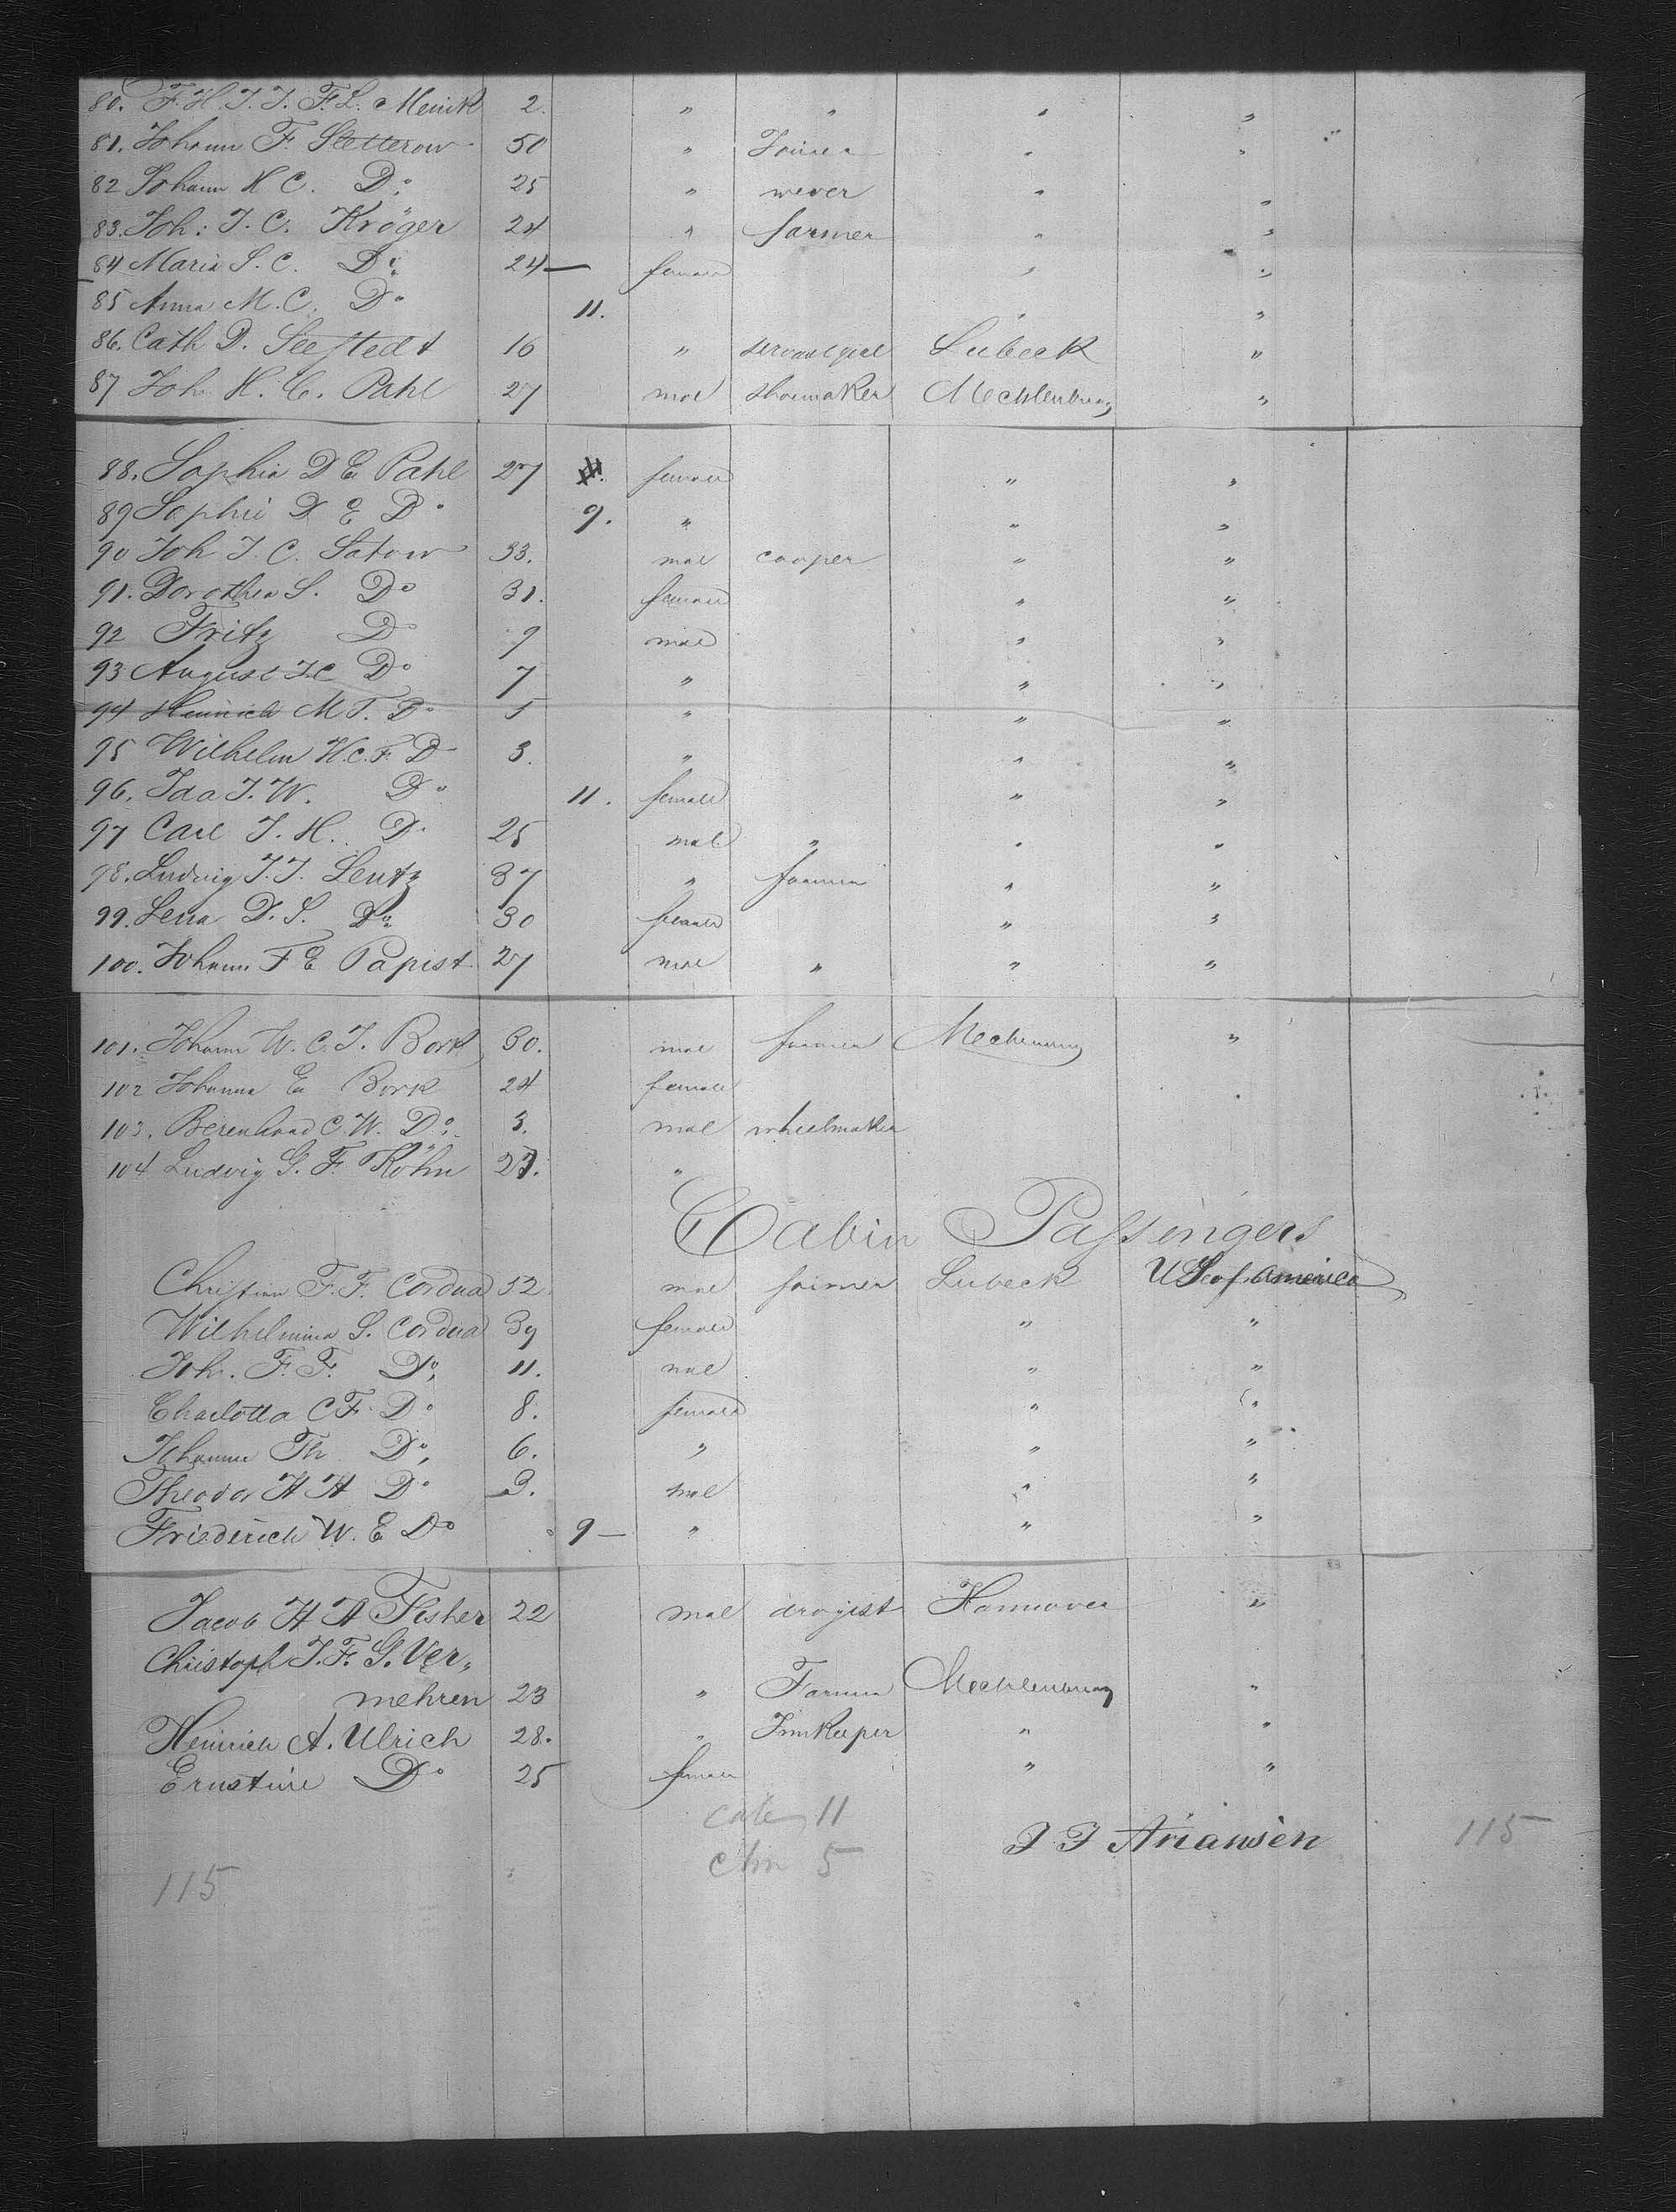 80. F. H. J. J. F. L. Menck 2. " " " "
81. Johann F. Stetterow 50 " Joiner " "
82 Johann H. C. Do 25 " wever " "
83. Joh: J. C. Kröger 24 " farmer " "
84 Maria S. C. Do 24 — female " "
85 Anna M. C. Do 11. " "
86. Cath D. Seestedt 16 " servant girl Lubeck "
87 Joh H. C. Pahl 27 mal shoemaker Mechlenburg "
88. Sophia D E Pahl 27 female " "
89 Sophie D E D 9. " " "
90 Joh J. C. Satow 33. mal cooper " "
91. Dorothea S. Do 31. female " "
92 Fritz D 9 male " "
93 August J. C Do 7 " " "
94 Heinrich M T. Do 5 " " "
95 Wilhelm H. C. F. D 3. " " "
96. Ida J. W. Do 11. female " "
97 Carl J. H. D. 25 mal " " "
98. Ludwig J. J. Lentz 37 " farmer " "
99. Lena D. S. Do 30 female " "
100. Johann F E Papist 27 mal " " "
101. Johann W. C. J. Bork 30. mal farmer "
102 Johanna E Bork 24 female
103. Berenhard C. W. Do 3. mal wheelmaker
104 Ludvig G. F. Köhn 27. "
Cabin Passengers
Christian F. F. Cordua 52 mal farmer Lubeck US of America
Wilhelmina S. Cordua 39 female " "
Joh. F. F. Do 11. mal " "
Charlotta C F. Do 8. female " "
Johanne Th Do 6. " " "
Theodor H H Do 3. mal " "
Friederich W. E Do 9 — " " "
Jacob H A Fisher 22 mal drogist Hannover "
Christoph J. F. G. Ver„
mehren 23 " Farmer Mechlenburg "
Heinrich A. Ulrich 28. " Innkeeper " "
Ernstine Do 25 female " "
11
5
J J Ariansen 115
115